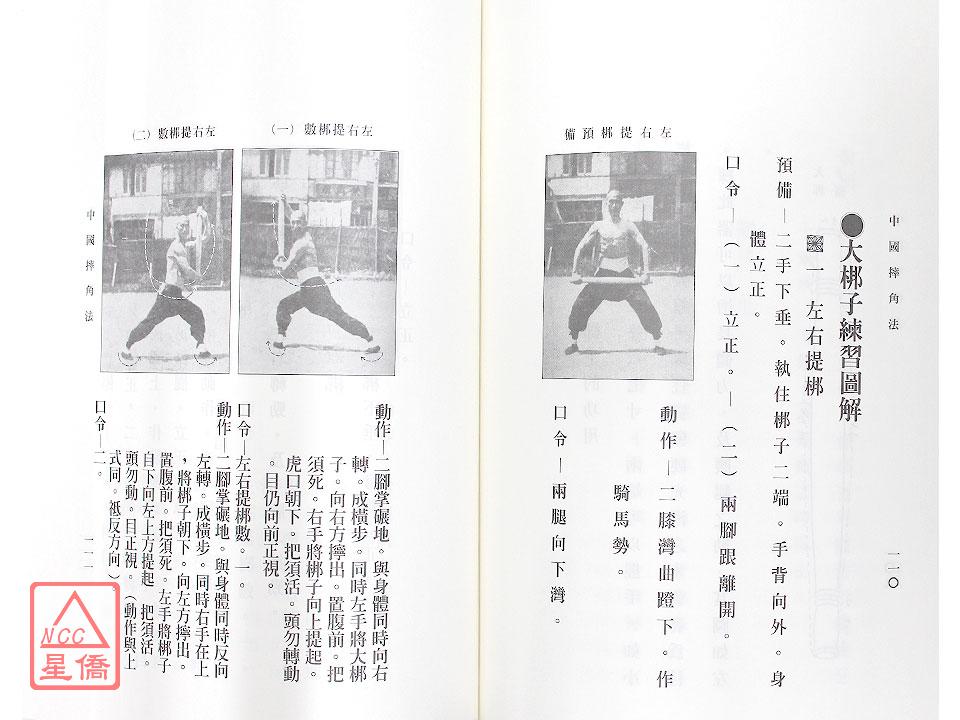 中國摔角法
一一○
●大梆子練習圖解
一 左右提梆
預備—二手下垂。執住梆子二端。手背向外。身
體立正。
口令—(一)立正。—(二)兩腳跟離開。
左右提梆預備
動作—二膝灣曲蹬下。作
騎馬勢。
口令—兩腿向下灣。
左右提梆數(一)
動作—二腳掌碾地。與身體同時向右
轉。成橫步。同時左手將大梆
子。向右方擰出。置腹前。把
須死。右手將梆子向上提起。
虎口朝下。把須活。頭勿轉動
。目仍向前正視。
口令—左右提梆數。一。
左右提梆數(二)
動作—二腳掌碾地。與身體同時反向
左轉。成橫步。同時右手在上
，將梆子朝下。向左方擰出。
置腹前。把須死。左手將梆子
自下向左上方提起 把須活。
頭勿動。目正視。（動作與上
式同。祗反方向）。
口令—二。
中國摔角法
一一一
NCC
星僑